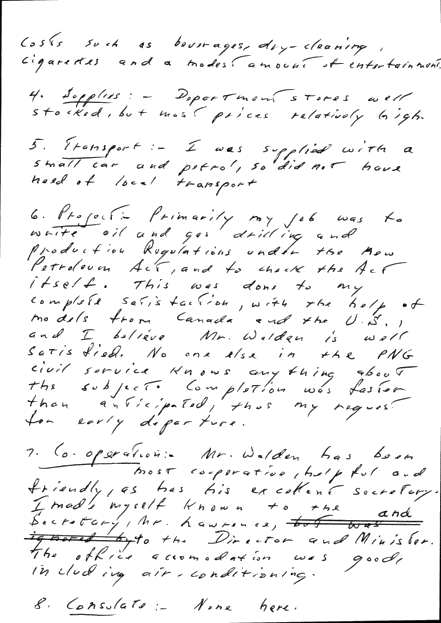 Costs such as beverages, dry-cleaning,
cigarettes and a modest amount of entertainment.
4. Supplies :- Department stores well
stocked, but most prices relatively high.
5. Transport :- I was supplied with a
small car and petrol, so did not have
need of local transport
6. Project :- Primarily my job was to
write oil and gas drilling and
production Regulations under the New
Petroleum Act, and to check the Act
itself. This was done to my
complete satisfaction, with the help of
models from Canada and the U.S.,
and I believe Mr. Welden is well
satisfied. No one else in the PNG
civil service knows anything about
the subject. Completion was faster
than anticipated, thus my request
for early departure.
7. Co-operation :- Mr. Welden has been
most cooperative, helpful and
friendly, as has his excellent secretary.
I made myself known to the and
Secretary, Mr. Lawrence, but was
ignored by to the Director and Minister.
The office accomodation was good,
including air-conditioning.
8. Consulate :- None here.